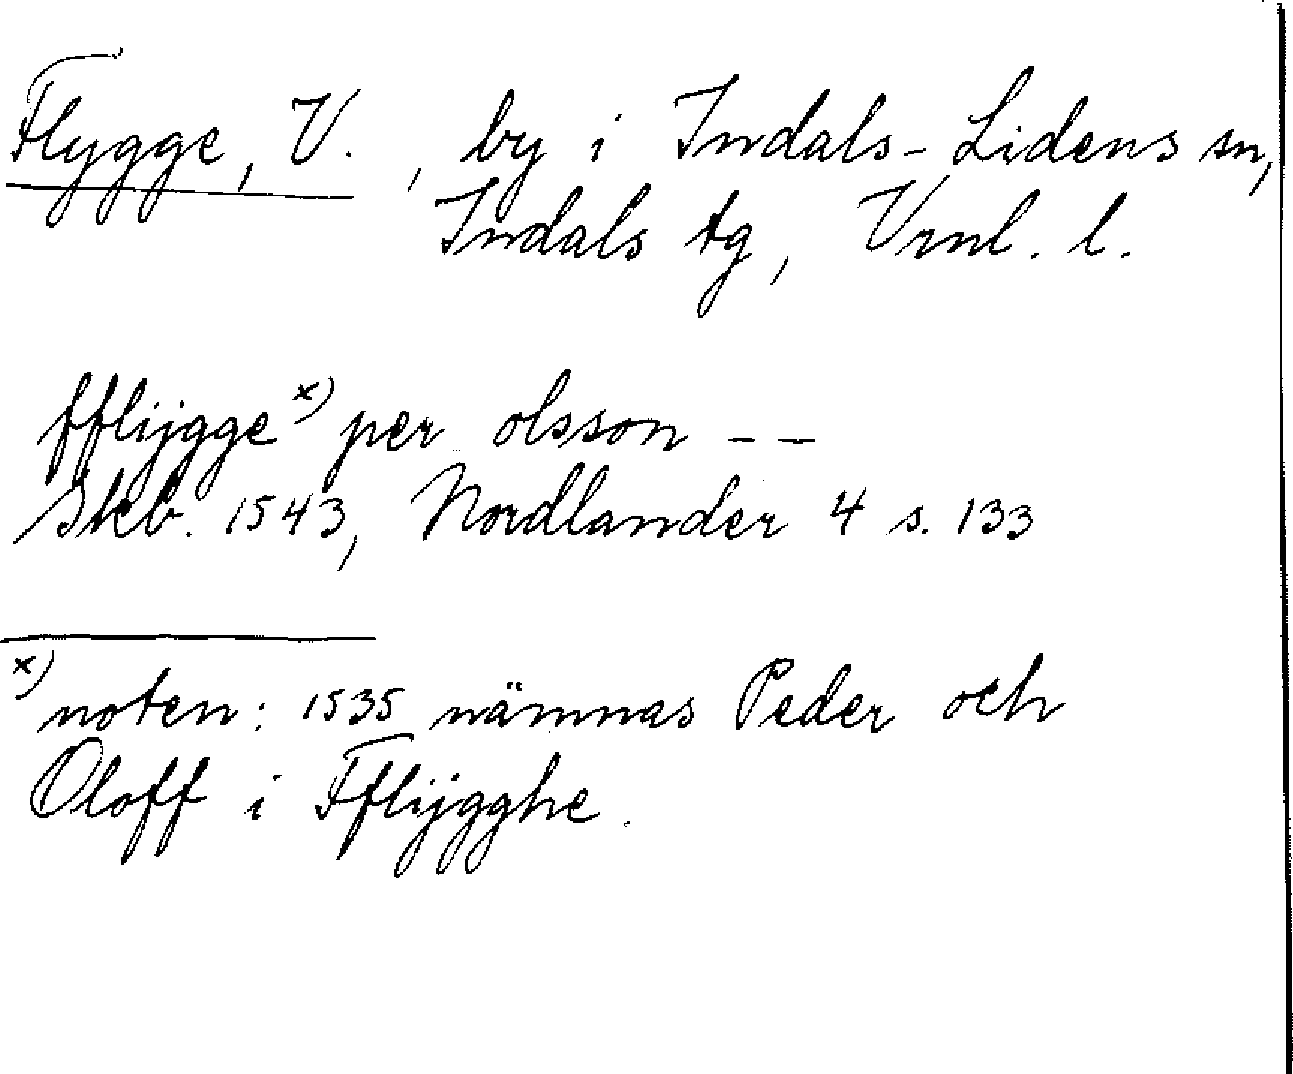 Flygge, V. , by i Indals-Lidens sn,
Indals tg, Vrnl. l.
fflijgge x) per olsson - -
Skb. 1543, Nordlander 4 s. 133
x) noten: 1535 nämnas Peder och
Oloff i Fflijgghe.